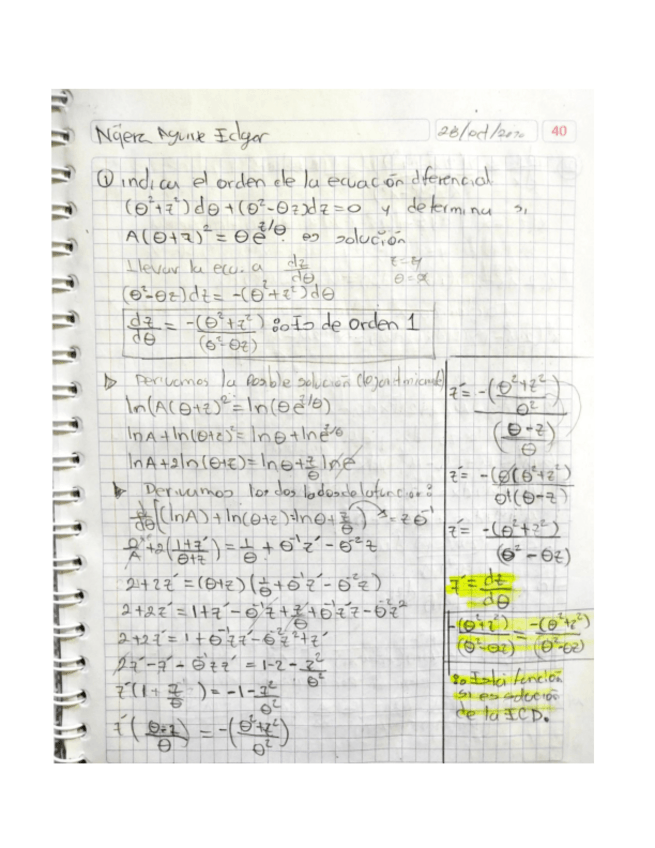 Nájera Aguirre Edgar 28/oct/2020 40
① indicar el orden de la ecuación diferencial
(θ²+z²)dθ+(θ²-θz)dz=0 y determina si
A(θ+z)²=θe^(z/θ). es solución
Llevar la ecu. a dz/dθ z=y
θ=x
(θ²-θz)dz=-(θ²+z²)dθ
dz/dθ = -(θ²+z²)/(θ²-θz) ∴ Es de orden 1
▷ Derivamos la posible solución (logaritmicamente)
ln(A(θ+z)²=ln(θe^(z/θ))
lnA+ln(θ+z)²=lnθ+lne^(z/θ)
lnA+2ln(θ+z)=lnθ+z/θ lne
▷ Derivamos los dos lados de la función:
d/dθ[(lnA)+ln(θ+z)=lnθ+z/θ) → =zθ⁻¹
0/A+2(1+z´/θ+z)=1/θ+θ⁻¹z´-θ⁻²z
2+2z´=(θ+z)(1/θ+θ⁻¹z´-θ⁻²z)
2+2z´=1+z´-θ⁻¹z+z/θ+θ⁻¹z´z-θ⁻²z²
2+2z´=1+θ⁻¹zz´-θ⁻²z²+z´
2z´-z´-θ⁻¹zz´=1-2-z²/θ²
z´(1+z/θ)=-1-z²/θ²
z´(θ-z/θ)=-(θ²+z²/θ²)
z´=-(θ²+z²/θ²)/(θ-z/θ)
z´=-(θ(θ²+z²)/θ²(θ-z)
z´=-(θ²+z²)/(θ²-θz)
z´=dz/dθ
-(θ²+z²)/(θ²-θz)=-(θ²+z²)/(θ²-θz)
∴ Esta función
si es solución
de la ECD.